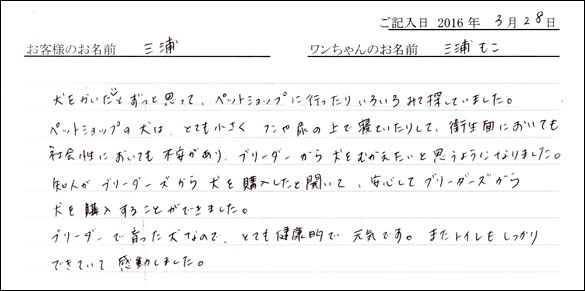 ご記入日 2016年 3月28日
お客様のお名前 三浦 ワンちゃんのお名前 三浦もこ
犬をかいたいとずっと思って、ペットショップに行ったりいろいろみて探していました。
ペットショップの犬は、とても小さく フンや尿の上で寝ていたりして、衛生面においても
社会性においても不安があり、ブリーダーから犬をむかえたいと思うようになりました。
知人がブリーダーズから犬を購入したと聞いて、安心してブリーダーズから
犬を購入することができました。
ブリーダーで育った犬なので、とても健康的で元気です。またトイレもしっかり
できていて感動しました。